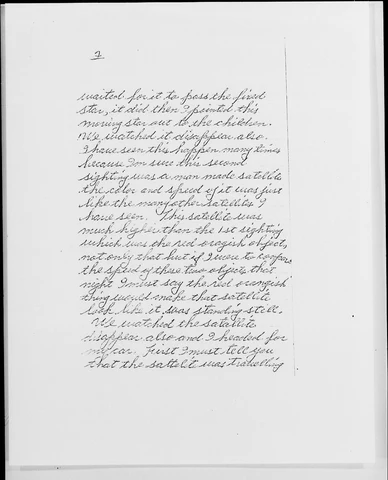 2
waited for it to pass the fixed
star, it did then I pointed this
moving star out to the children.
We watched it disappear also.
I have seen this happen many times
because I'm sure this second
sighting was a man made satellite
the color and speed of it was just
like the many other satellites I
have seen. This satellite was
much higher than the 1st sighting
which was the red oragish object,
not only that but if I were to compare
the speed of these two objects that
night I must say the red orangish
thing would make that satellite
look like it was standing still.
We watched the satallite
disappear also and I headed for
my car. First I must tell you
that the sattelite was travelling